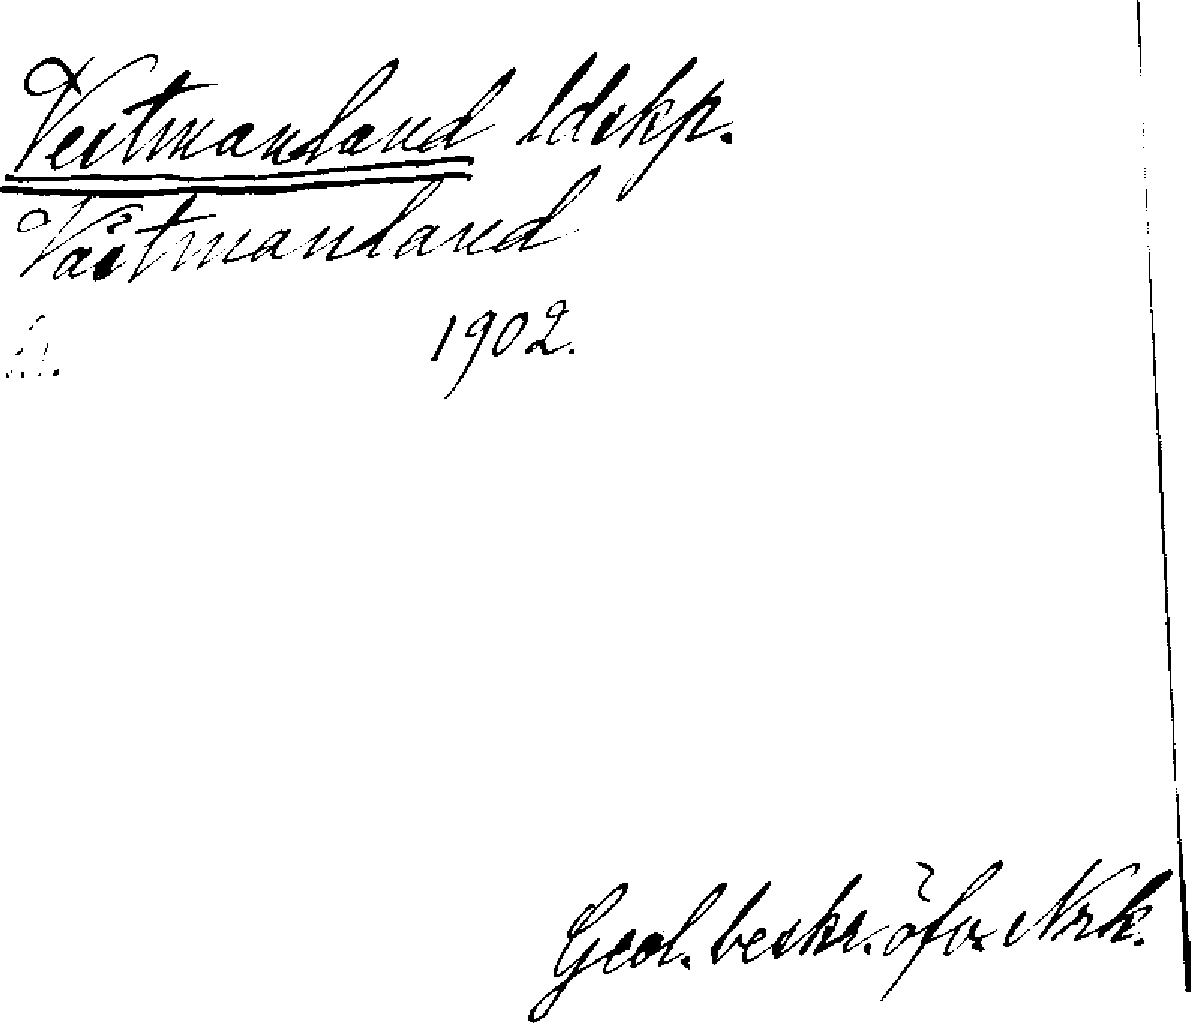 Vestmanland ldskp.
Västmanland
1902.
Geol. beskr. öfv. Nrk.